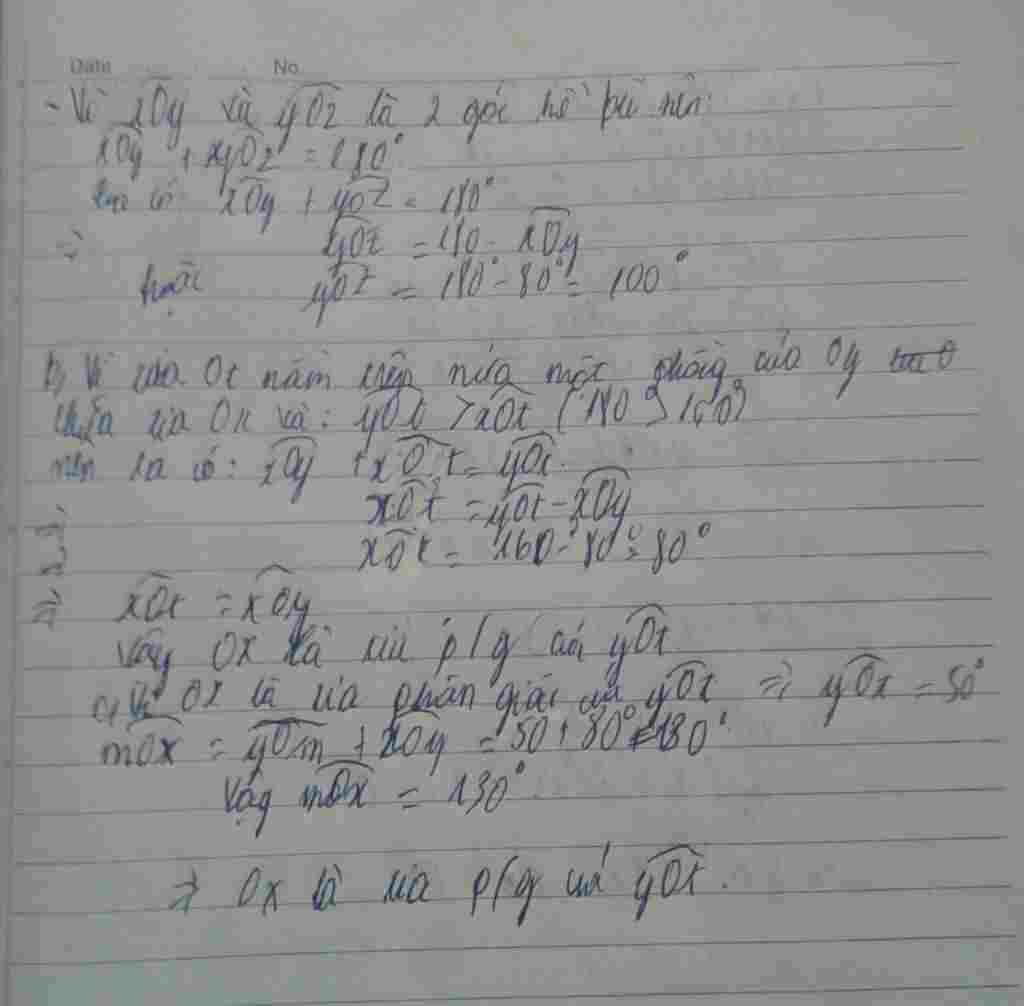 Date No
- Vì xOy và yOz là 2 góc kề bù nên:
xOy + xyOz = 180°
xOy + yOz = 180°
⇒ yOz = 180 - xOy
yOz = 180° - 80° = 100°
b, Vì tia Ot nằm trên nửa mặt phẳng của Oy
chứa tia Ox và: yOt > xOt (180° > 160°)
nên ta có: xOy + xOt = yOt.
xOt = yOt - xOy
xOt = 160 - 80 = 80°
⇒ xOt = xOy
Vậy Ox là tia p/g của yOt
c, Vì Ox là tia phân giác của yOz ⇒ yOx = 50°
mOx = yOm + xOy = 50 + 80° = 130°
Vậy mOx = 130°
⇒ Ox là tia p/g của yOt.